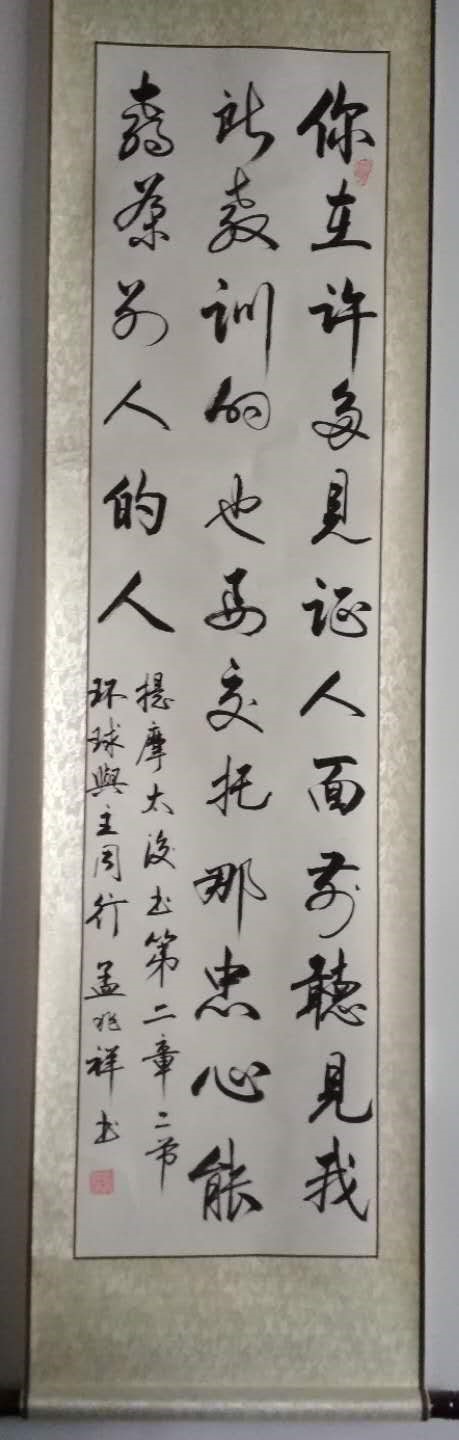 你在许多見证人面前聽見我
所教训的也要交托那忠心能
教导别人的人
提摩太後书第二章二节
环球與主同行 孟兆祥书